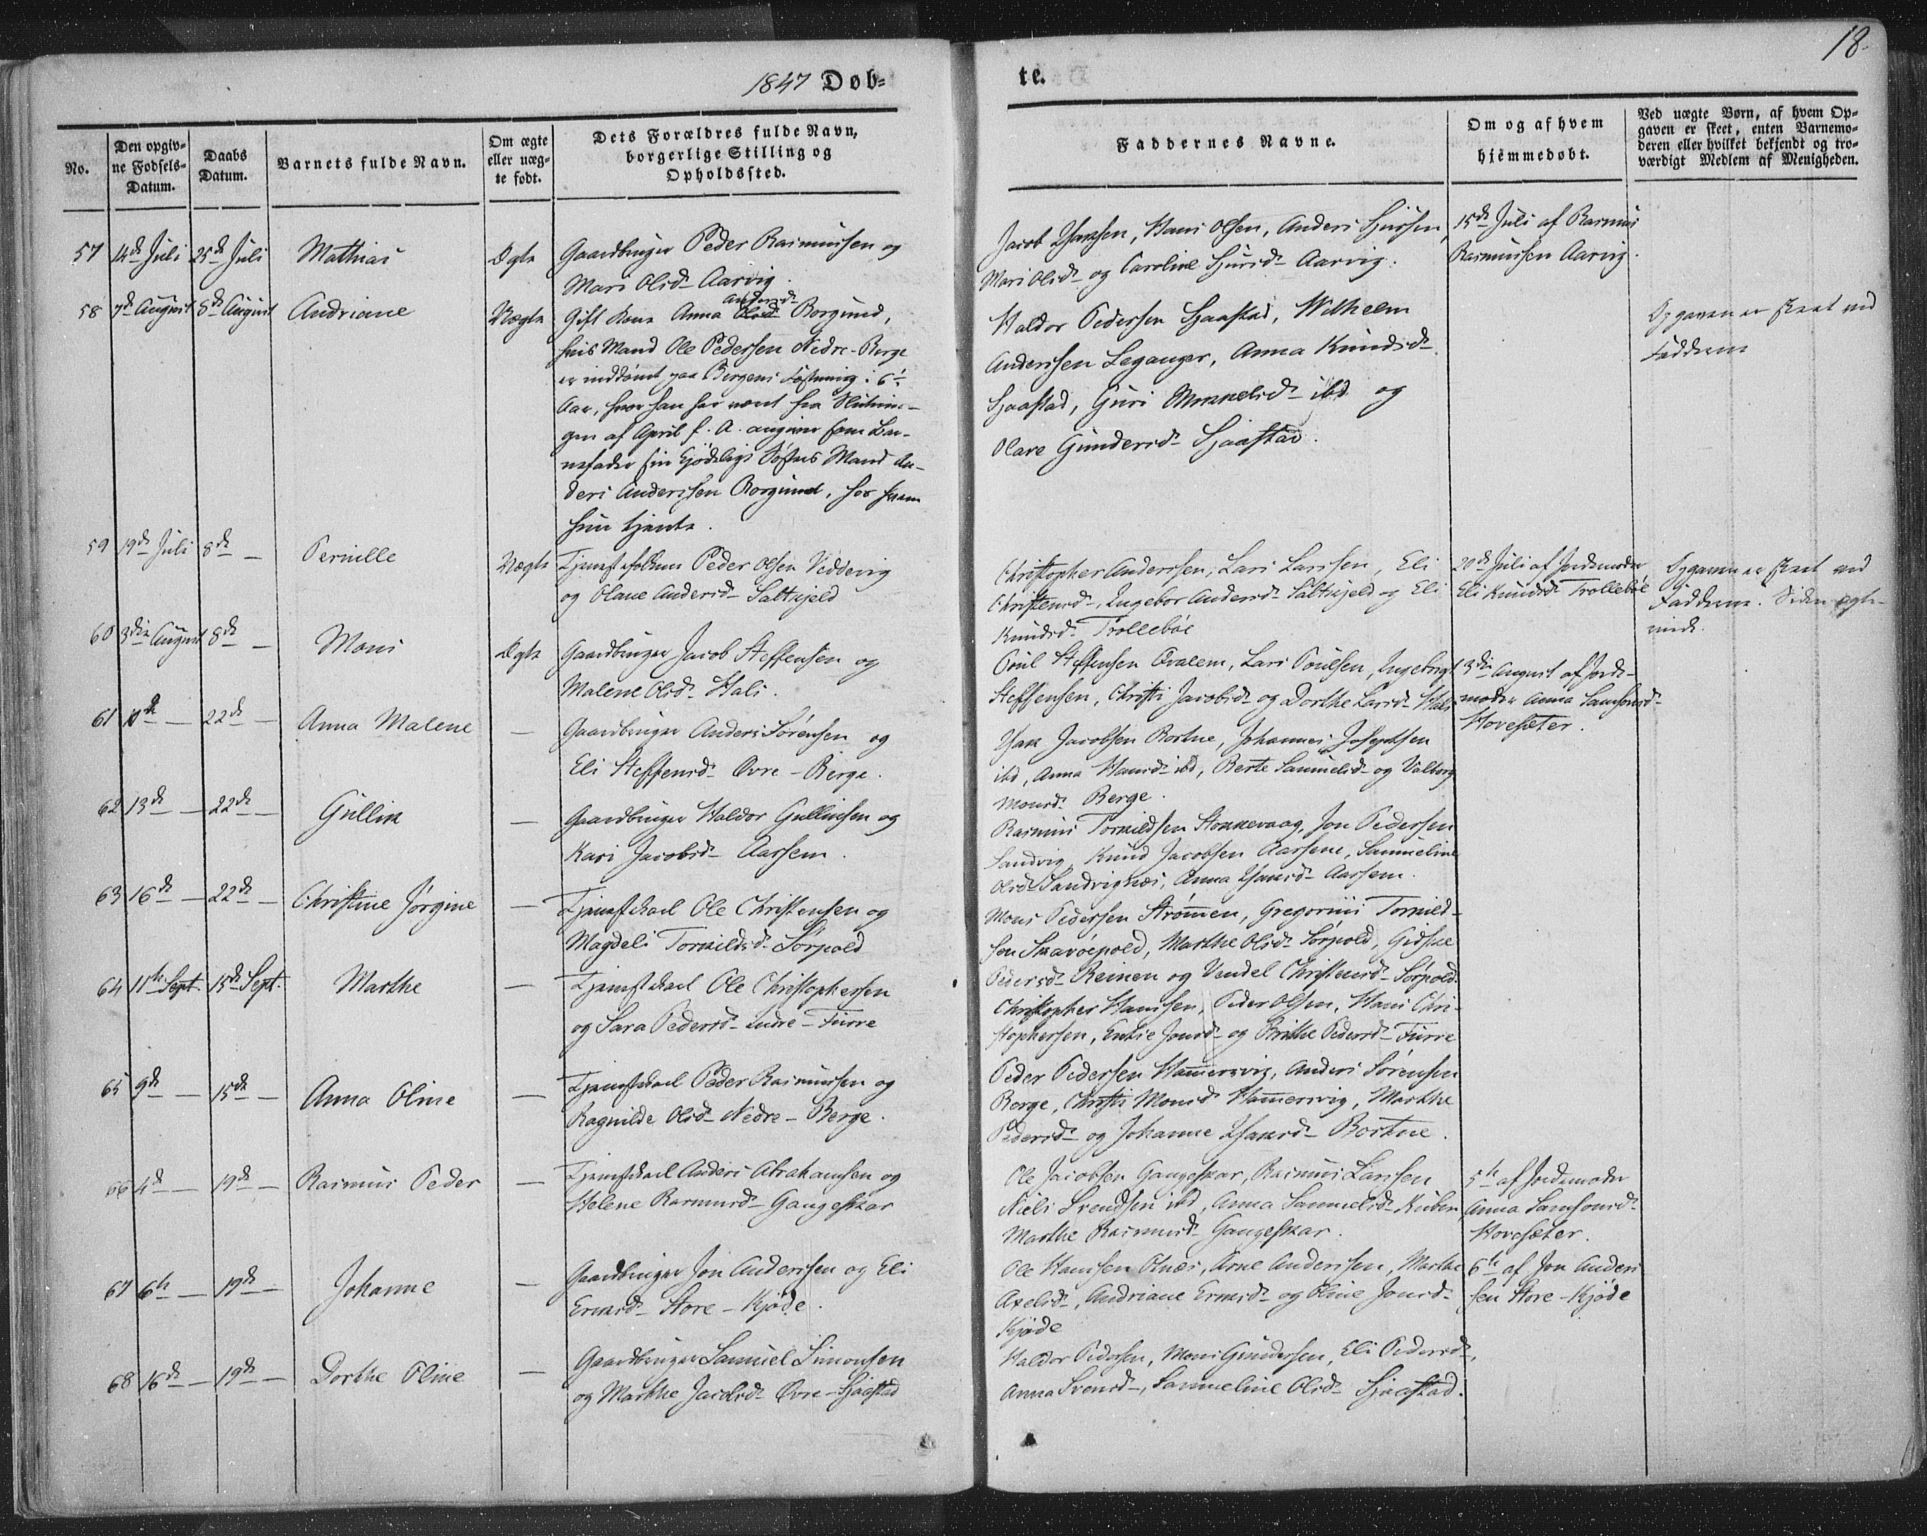 1847 Døb-
te.
18.
No.
Den opgiv-
ne Fødsels-
Datum.
Daabs
Datum.
Barnets fulde Navn.
Om ægte
eller uæg-
te født.
Dets Forældres fulde Navn,
borgerlige Stilling og
Opholdssted.
Faddernes Navne.
Om og af hvem
hjemmedøbt.
Ved uægte Børn, af hvem Op-
gaven er skeet, enten Barnemo-
deren eller hvilket bekjendt og tro-
værdigt Medlem af Menigheden.
57 14de Juli 25de Juli Mathias Ægte Gaardbruger Peder Rasmussen og
Mari Olsd- Aarvig.
Jacob Hanssen, Hans Olsen, Anders Sjursen,
Mari Olsd- og Caroline Sjursd- Aarvig.
15de Juli af Rasmus
Rasmussen Aarvig.
58 7de August 8de August Andriane Uægte Gift Kone Anna Andersd- Borgund,
hvis Mand Ole Pedersen Nedre-Berge
er inddømt paa Bergens Fæstning i 6
Aar, hvor han har været fra Slutnin-
gen af April f. A. angiver som Bar-
nefader sin kjødelige Søsters Mand An-
ders Anderssen Borgund, hos hvem
hun tjente.
Haldor Pedersen Sjaastad, Wilhelm
Anderssen Leganger, Anna Knudsd-
Sjaastad, Guri Monnelsd- ibd og
Olave Gundersd- Sjaastad.
Opgaven er skeet ved
Fadderne
59 19de Juli 8de - Pernille Uægte Tjenestefolkene Peder Olsen Veddevig
og Olave Andersd- Saltskjeld
Christopher Anderssen, Lars Larssen, Eli
Christensd-, Ingebor Andersd- Saltskjeld og Eli
Knudsd- Trollebøe
20de Juli af Jordemoder
Eli Knudsd- Trollebøe
Opgaven er skeet ved
Fadderne. Siden ægte-
viede.
60 3die August 8de - Mons Ægte Gaardbruger Jacob Steffensen og
Malene Olsd- Hals.
Poul Steffensen Qvalem, Lars Poulsen, Ingebrigt
Steffensen, Christi Jacobsd- og Dorthe Larsd- Hals
3die August af Jorde-
moder Anna Samsonsd-
Hovesæter.
61 10de - 22de - Anna Malene - Gaardbruger Anders Sørensen og
Eli Steffensd- Øvre-Berge.
Isak Jacobsen Bortne, Johannes Josephsen
ibd, Anna Hansd- ibd, Berte Samuelsd- og Valborg
Monsd- Berge.
62 13de - 22de - Gullik - Gaardbruger Haldor Gulliksen og
Kari Jacobsd- Aarsem.
Rasmus Tormildsen Stokkevaag, Jon Pedersen
Sandvig, Knud Jacobsen Aarsene, Samueline
Olsd- Sandvignæs, Anna Hansd- Aarsem.
63 16de - 22de - Christine Jørgine - Tjenestekarl Ole Christensen og
Magdeli Tormildsd- Sørpold
Mons Pedersen Strømen, Gregorius Tormild-
sen Skavøepold, Marthe Olsd- Sørpold, Gidske
Pedersd- Reinen og Vendel Christensd- Sørpold.
64 11te Sept. 15de Sept. Marthe - Tjenestekarl Ole Christophersen
og Sara Pedersd- Indre-Furre
Christopher Hanssen, Peder Olsen, Hans Chri-
stophersen, Enkie Jonsd- og Brithe Pedersd- Furre
65 9de - 15de - Anna Oline - Tjenestekarl Peder Rasmussen og
Ragnilde Olsd- Nedre-Berge.
Peder Pedersen Hammersvig, Anders Sørensen
Berge, Christi Monsd- Hammersvig, Marthe
Pedersd- og Johanne Isaksd- Bortne.
66 4de - 19de - Rasmus Peder - Tjenestekarl Anders Abrahamsen og
Helene Rasmusd- Gangeskar
Ole Jacobsen Gangeskar, Rasmus Larssen
Niels Svendsen ibd, Anna Samuelsd- Kuben,
Marthe Rasmusd- Gangeskar.
5te af Jordemoder
Anna Samsonsd-
Hovesæter.
67 6te - 19de - Johanne - Gaardbruger Jon Anderssen og Eli
Ernsd- Store-Kjøde.
Ole Hanssen Otnæs, Arne Anderssen, Marthe
Axelsd-, Andriane Ernsd- og Oline Jonsd-
Kjøde
6te af Jon Anders
sen Store-Kjøde
68 16de - 19de - Dorthe Oline - Gaardbruger Samuel Simonsen
og Marthe Jacobsd- Øvre-Sjaastad
Haldor Pedersen, Mons Gundersen, Eli Pedersd-,
Anna Svensd-, Samueline Olsd- Sjaastad.